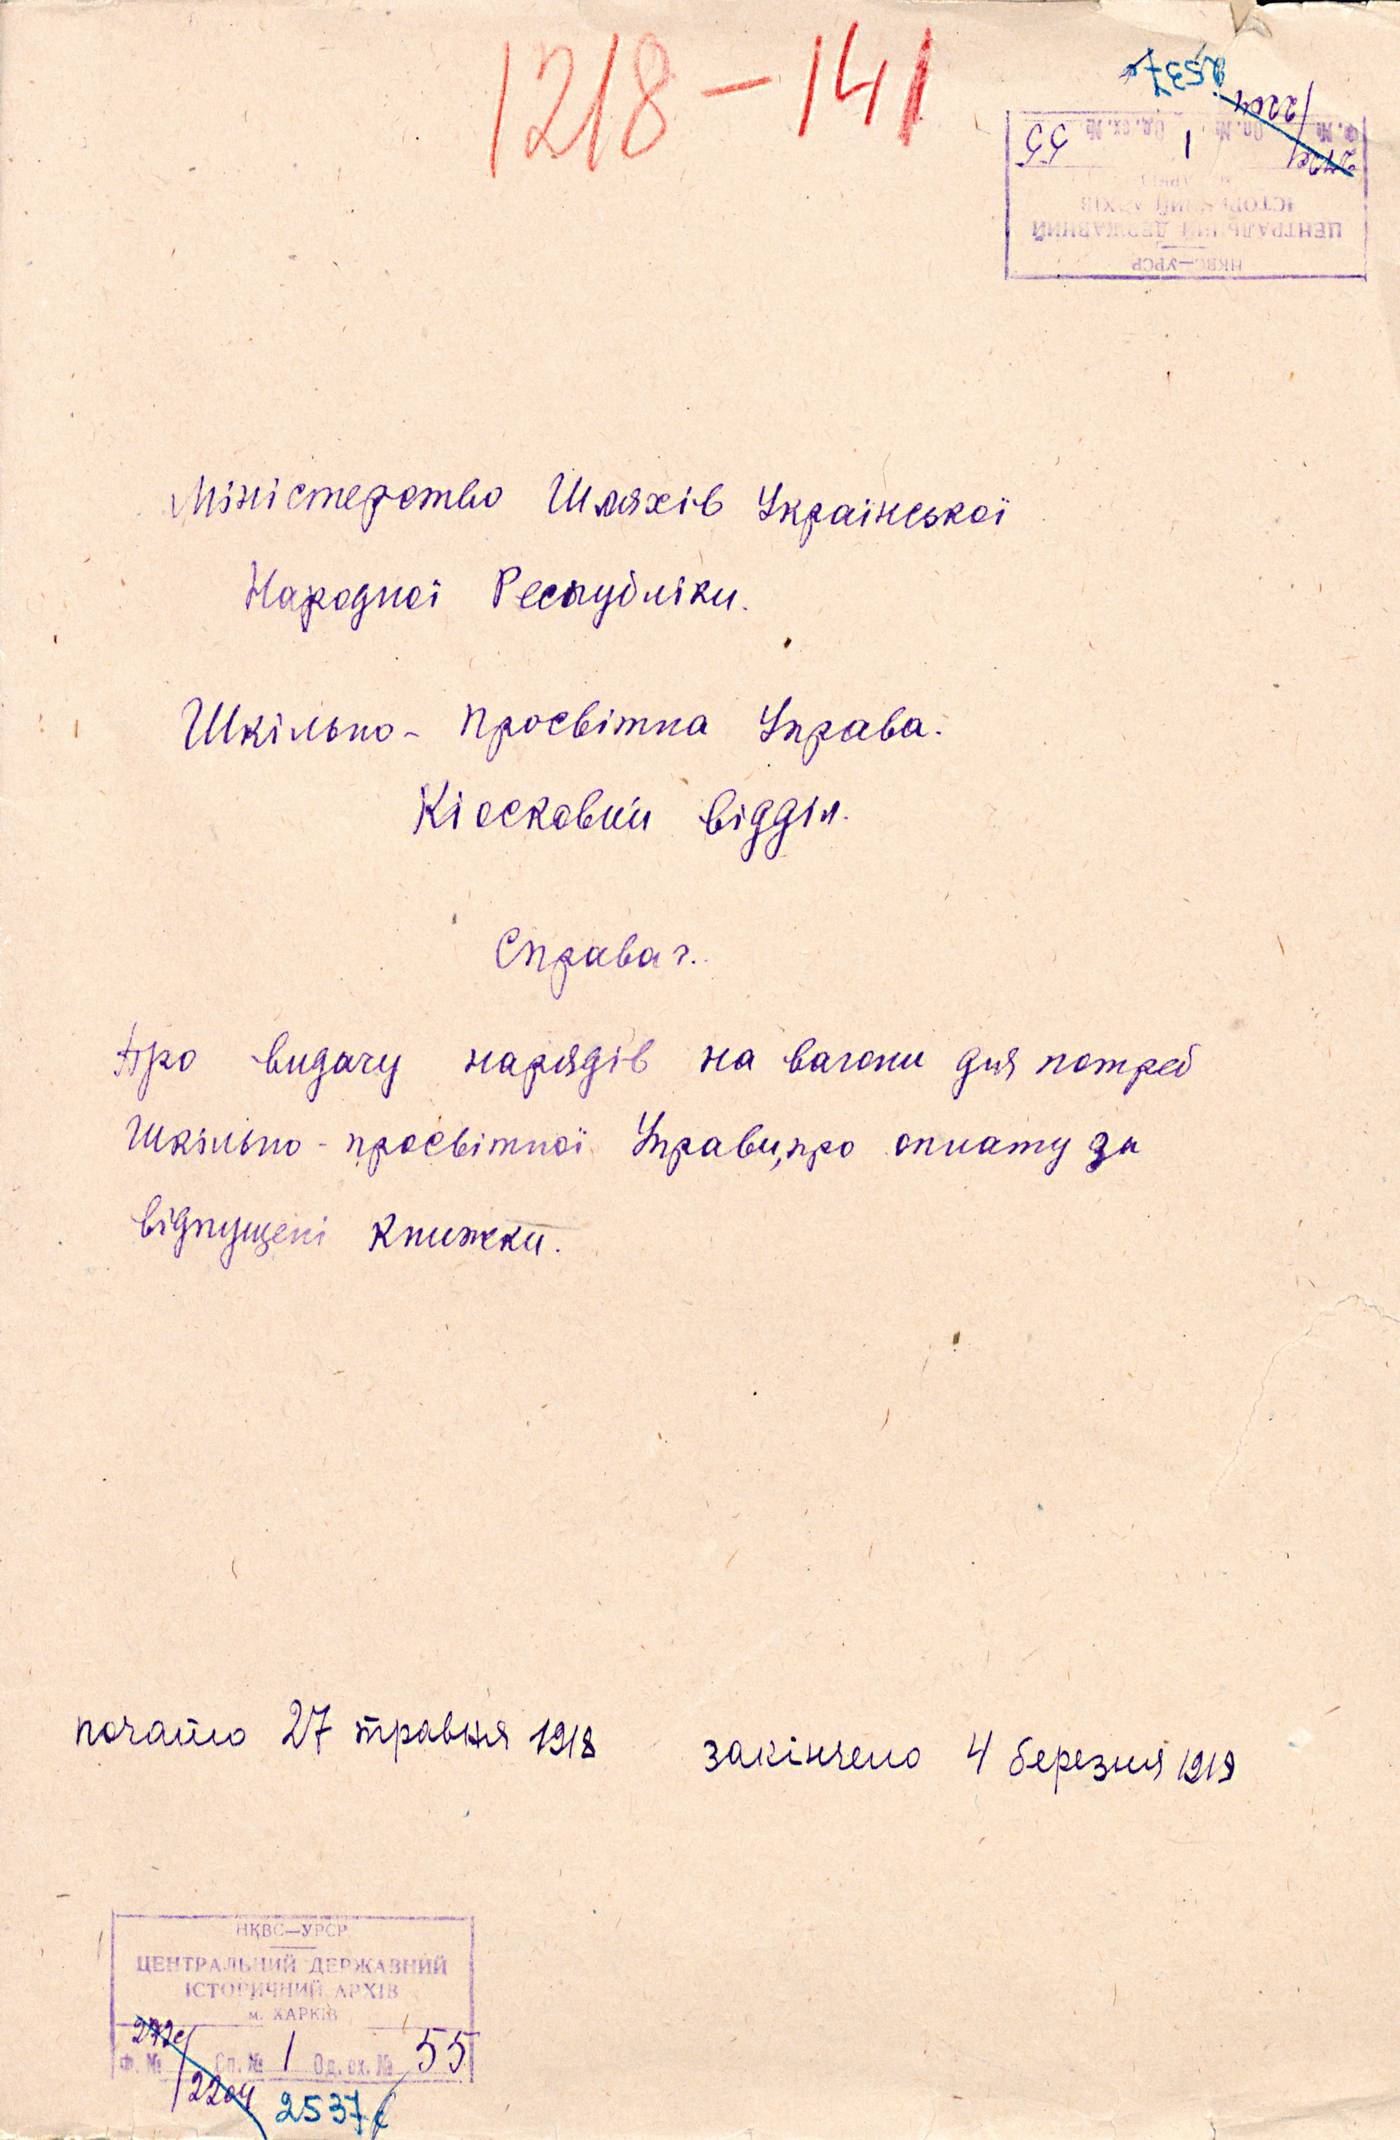 1218-141
2537
2204
Ф. № Оп. № 1 Од. зх. № 55
ІСТОРИЧНИЙ АРХІВ
ЦЕНТРАЛЬНИЙ ДЕРЖАВНИЙ
НКВС—УРСР
Міністерство Шляхів Української
Народної Республіки.
Шкільно-Просвітна Управа.
Кіосковий відділ.
Справа
Про видачу нарядів на вагони для потреб
Шкільно-просвітної Управи, про оплату за
відпущені книжки.
почато 27 травня 1918 закінчено 4 березня 1919
НКВС—УРСР
ЦЕНТРАЛЬНИЙ ДЕРЖАВНИЙ
ІСТОРИЧНИЙ АРХІВ
м. ХАРКІВ
Ф. № Оп. № 1 Од. зх. № 55
2204 2537